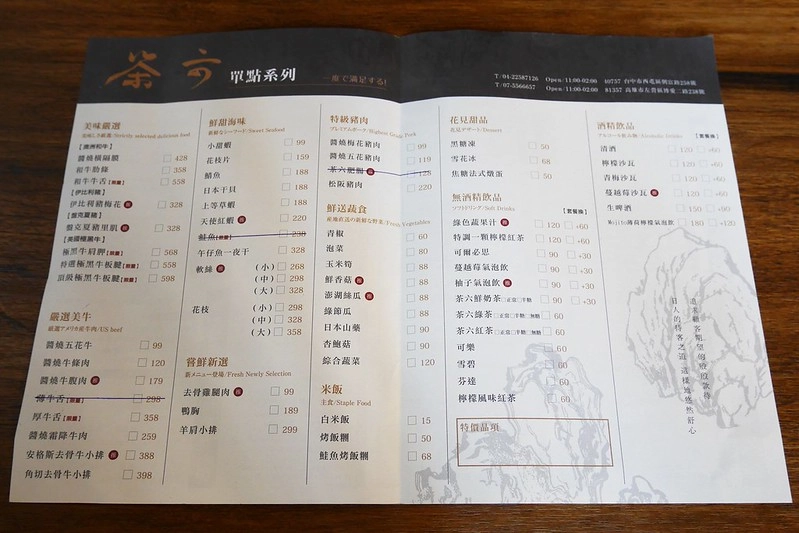 茶六
單點系列
一度で満足する!
T/04-22587126 Open/11:00-02:00 40757 台中市西屯區朝富路258號
T/07-5566657 Open/11:00-02:00 81357 高雄市左營區博愛二路238號
美味嚴選
美味しさ厳選/Strictly selected delicious food
【澳洲和牛】
醬燒橫隔膜 428
和牛肋條 358
和牛牛舌【限量】 558
【伊比利豬】
伊比利豬梅花 328
【盤克夏豬】
盤克夏豬里肌 328
【美國極黑牛】
極黑牛肩胛【限量】 568
特選極黑牛板腱【限量】 558
頂級極黑牛板腱【限量】 598
嚴選美牛
厳選アメリカ産牛肉/US beef
醬燒五花牛 99
醬燒牛條肉 120
醬燒牛腹肉 179
薄牛舌【限量】 298
厚牛舌【限量】 358
醬燒霜降牛肉 259
安格斯去骨牛小排 388
角切去骨牛小排 398
鮮甜海味
新鮮なシーフード/Sweet Seafood
小甜蝦 99
花枝片 159
鯖魚 188
日本干貝 188
上等草蝦 188
天使紅蝦 220
鮭魚【限量】 238
午仔魚一夜干 328
軟絲 (小) 268
(中) 298
(大) 328
花枝 (小) 298
(中) 328
(大) 358
嘗鮮新選
新メニュー登場/Fresh Newly Selection
去骨雞腿肉 99
鴨胸 189
羊肩小排 299
特級豬肉
プレミアムポーク/Highest Grade Pork
醬燒梅花豬肉 99
醬燒五花豬肉 119
茶六肥腸 128
松阪豬肉 220
鮮送蔬食
産地直送の新鮮な野菜/Fresh Vegetables
青椒 60
泡菜 80
玉米筍 80
鮮香菇 80
澎湖絲瓜 80
綠節瓜 88
日本山藥 90
杏鮑菇 90
綜合蔬菜 120
米飯
主食/Staple Food
白米飯 15
烤飯糰 50
鮭魚烤飯糰 68
花見甜品
花見デザート/Dessert
黑糖凍 50
雪花冰 68
焦糖法式燉蛋 50
無酒精飲品
ソフトドリンク/Soft Drinks 【套餐換】
綠色蔬果汁 120 +60
特調一顆檸檬紅茶 120 +60
可爾必思 90 +30
蔓越莓氣泡飲 90 +30
柚子氣泡飲 90 +30
茶六鮮奶茶 正常 半糖 90 +30
茶六綠茶 正常 半糖 無糖 60
茶六紅茶 正常 半糖 無糖 60
可樂 60
雪碧 60
芬達 60
檸檬風味紅茶 60
特價品項
酒精飲品
アルコール飲み物/Alcoholic Drinks 【套餐換】
清酒 120 +60
檸檬沙瓦 120 +60
青梅沙瓦 120 +60
蔓越莓沙瓦 120 +60
生啤酒 150 +60
Mojito薄荷檸檬氣泡飲 180 +120
追求顧客期望的極致款待
日人的待客之道 這樣地悠然舒心